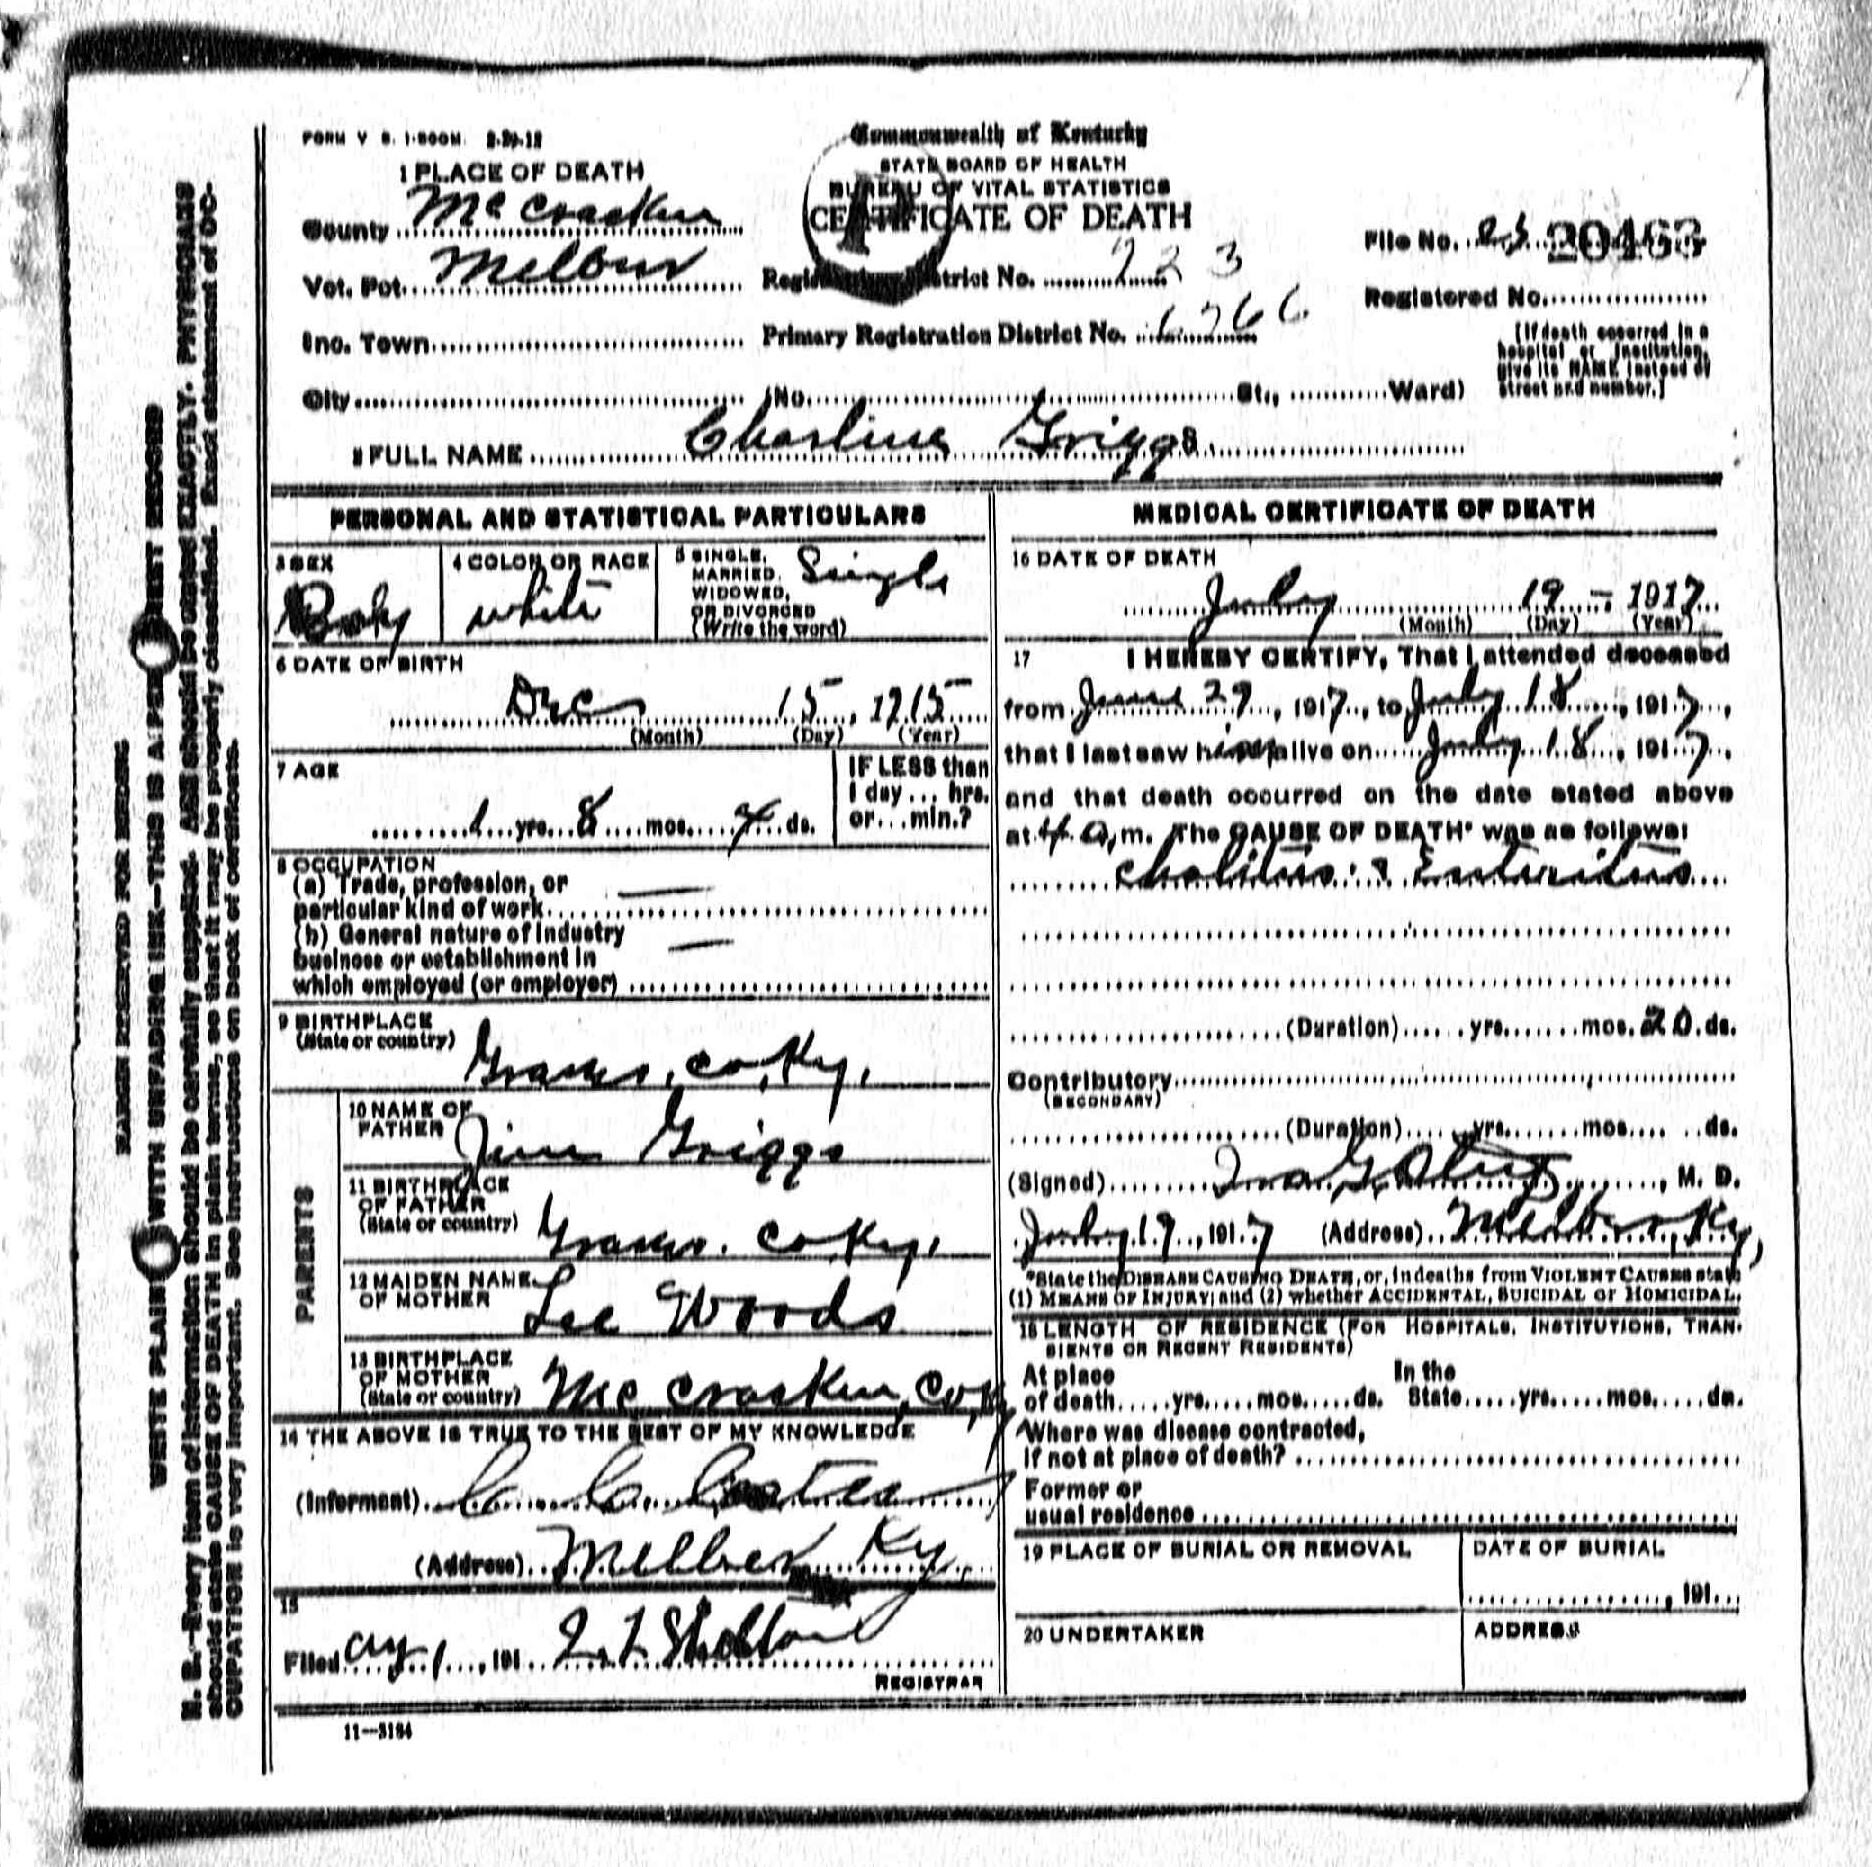 FORM V S. 1-500M. 2-20-12
Commonwealth of Kentucky
STATE BOARD OF HEALTH
BUREAU OF VITAL STATISTICS
CERTIFICATE OF DEATH
1 PLACE OF DEATH
County McCracken
Vot. Pct. Melber
Inc. Town
City (No. St., Ward)
Registration District No. 723
Primary Registration District No. 6766
File No. 20463
Registered No.
(If death occurred in a
hospital or institution,
give its NAME instead of
street and number.)
2 FULL NAME Charline Griggs.
PERSONAL AND STATISTICAL PARTICULARS
3 SEX
Boby
4 COLOR OR RACE
white
5 SINGLE,
MARRIED,
WIDOWED,
OR DIVORCED
(Write the word)
Single
6 DATE OF BIRTH
Dec 15, 1915
(Month) (Day) (Year)
7 AGE
1 yrs. 8 mos. 4 ds.
IF LESS than
1 day... hrs.
or... min.?
8 OCCUPATION
(a) Trade, profession, or
particular kind of work
(b) General nature of industry
business or establishment in
which employed (or employer)
9 BIRTHPLACE
(State or country)
Graves, Co, Ky,
PARENTS
10 NAME OF
FATHER
Jim Griggs
11 BIRTHPLACE
OF FATHER
(State or country)
Graves. Co Ky,
12 MAIDEN NAME
OF MOTHER
Lee Woods
13 BIRTHPLACE
OF MOTHER
(State or country)
McCracken, Co, Ky
14 THE ABOVE IS TRUE TO THE BEST OF MY KNOWLEDGE
(Informant) C. C.
(Address) Melber Ky,
15
Filed Aug 1, 191 Shelton
REGISTRAR
11—3184
MEDICAL CERTIFICATE OF DEATH
16 DATE OF DEATH
July 19 - 1917
(Month) (Day) (Year)
17 I HEREBY CERTIFY, That I attended deceased
from June 29, 1917, to July 18, 1917,
that I last saw him alive on July 18, 1917.
and that death occurred on the date stated above
at 4 a, m. The CAUSE OF DEATH* was as follows:
Cholitus & Enteritus
(Duration) yrs. mos. 20 ds.
Contributory
(SECONDARY)
(Duration) yrs. mos. ds.
(Signed) Ira G. , M. D.
July 19, 1917 (Address) Melber, Ky,
*State the DISEASE CAUSING DEATH, or, in deaths from VIOLENT CAUSES state
(1) MEANS OF INJURY; and (2) whether ACCIDENTAL, SUICIDAL or HOMICIDAL.
18 LENGTH OF RESIDENCE (FOR HOSPITALS, INSTITUTIONS, TRAN-
SIENTS OR RECENT RESIDENTS)
At place In the
of death yrs. mos. ds. State yrs. mos. ds.
Where was disease contracted,
If not at place of death?
Former or
usual residence
19 PLACE OF BURIAL OR REMOVAL
DATE OF BURIAL
, 191
20 UNDERTAKER
ADDRESS
MARGIN RESERVED FOR BINDING
WRITE PLAINLY WITH UNFADING INK—THIS IS A PERMANENT RECORD
N. B.—Every item of information should be carefully supplied. AGE should be stated EXACTLY. PHYSICIANS
should state CAUSE OF DEATH in plain terms, so that it may be properly classified. Exact statement of OC-
CUPATION is very important. See instructions on back of certificate.